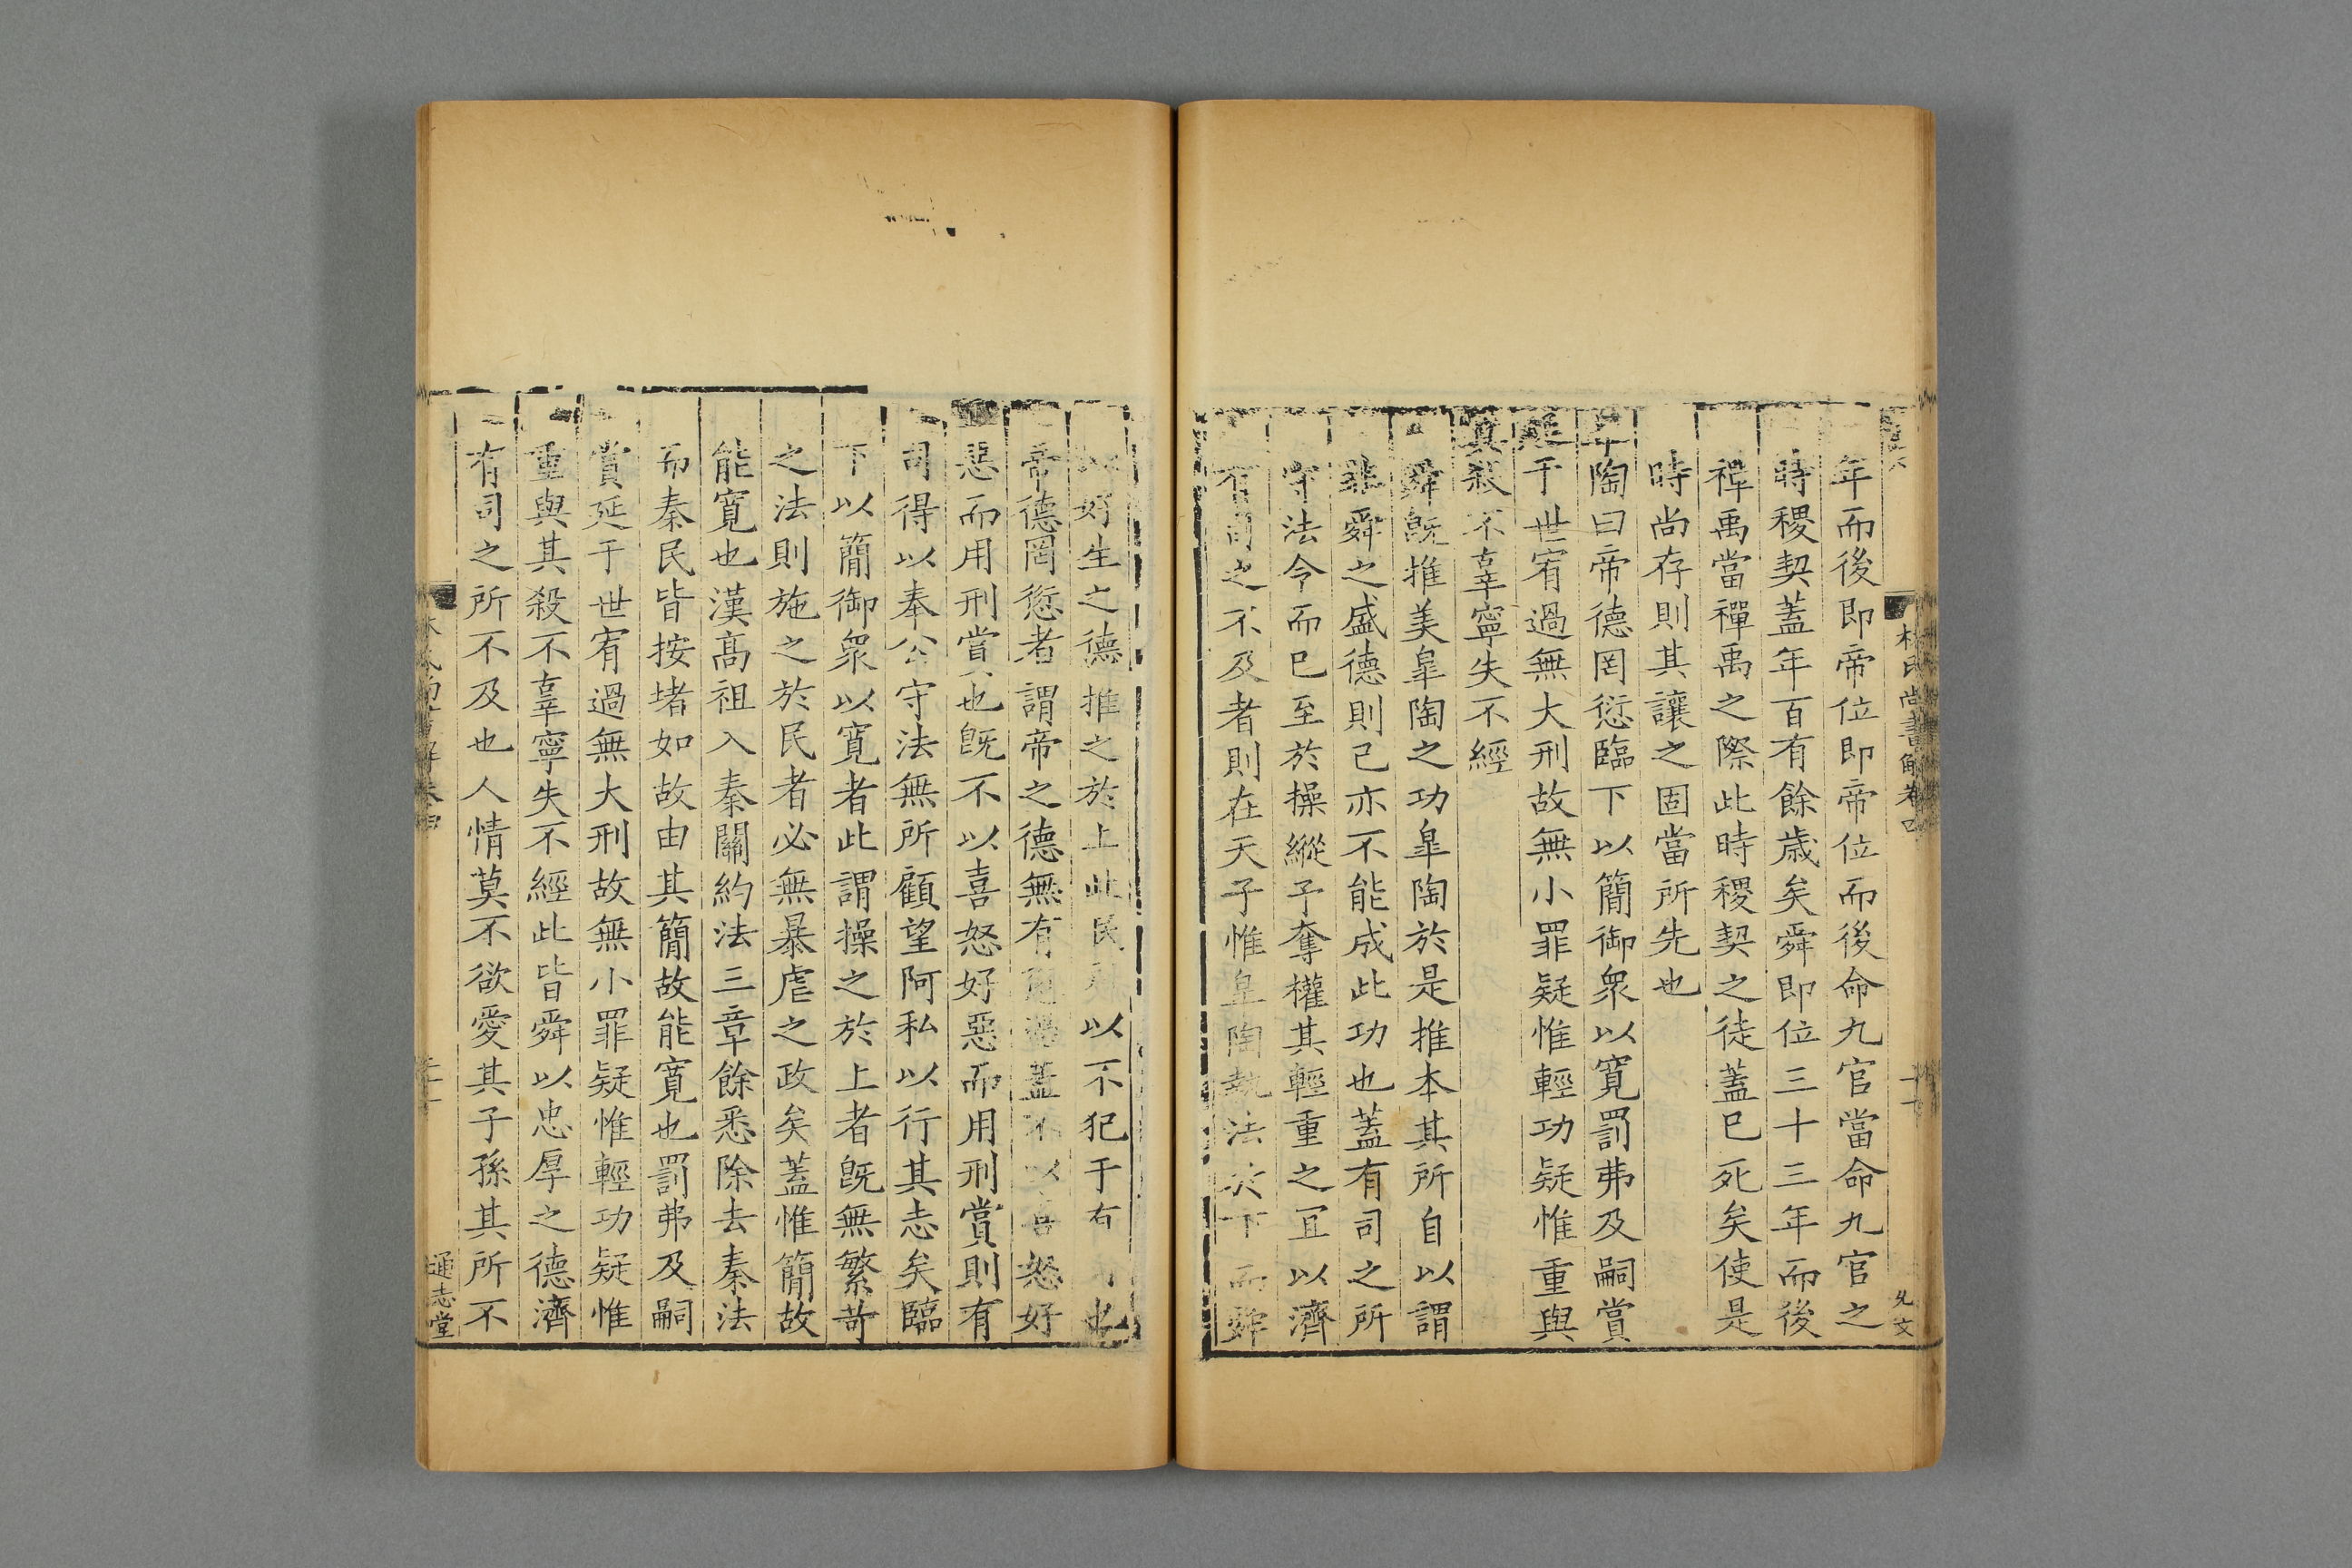 林氏尚書解卷四
年而後即帝位即帝位而後命九官當命九官之
時稷契蓋年百有餘歲矣舜即位三十三年而後
禪禹當禪禹之際此時稷契之徒蓋已死矣使是
時尚存則其讓之固當所先也
皐陶曰帝德罔愆臨下以簡御衆以寬罰弗及嗣賞
延于世宥過無大刑故無小罪疑惟輕功疑惟重與
其殺不辜寧失不經
舜既推美臯陶之功臯陶於是推本其所自以謂
非舜之盛德則己亦不能成此功也蓋有司之所
守法令而已至於操縱予奪權其輕重之宜以濟
有司之不及者則在天子惟臯陶執法於下而舜
以好生之德推之於上此民所以不犯于有司也
帝德罔愆者謂帝之德無有愆過蓋不以喜怒好
惡而用刑賞也既不以喜怒好惡而用刑賞則有
司得以奉公守法無所顧望阿私以行其志矣臨
下以簡御衆以寬者此謂操之於上者既無繁苛
之法則施之於民者必無暴虐之政矣蓋惟簡故
能寬也漢高祖入秦關約法三章餘悉除去秦法
而秦民皆按堵如故由其簡故能寬也罰弗及嗣
賞延于世宥過無大刑故無小罪疑惟輕功疑惟
重與其殺不辜寧失不經此皆舜以忠厚之德濟
有司之所不及也人情莫不欲愛其子孫其所不
通志堂